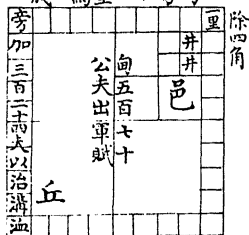 除四角
一里
井井
井井
邑
甸五百七十
公夫出軍賦
丘
旁加三百二十兩夫以治溝洫